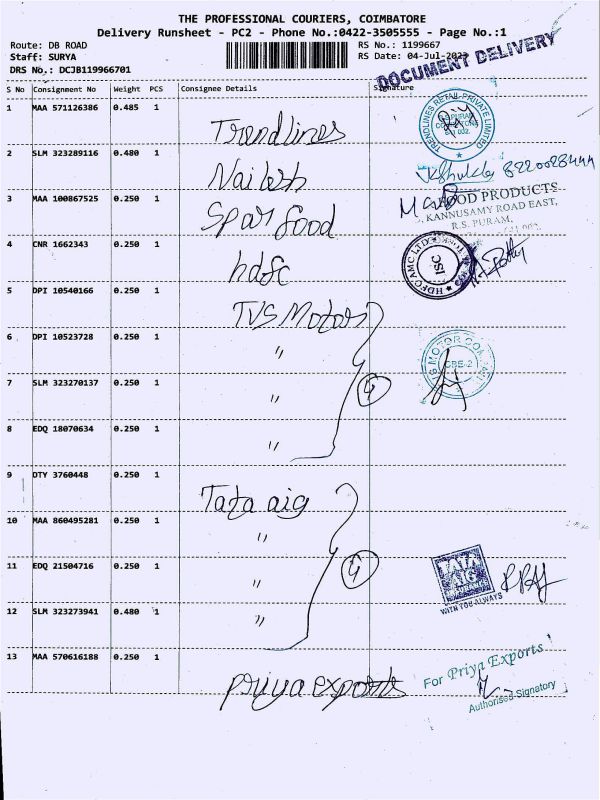 THE PROFESSIONAL COURIERS, COIMBATORE
Delivery Runsheet - PC2 - Phone No.:0422-3505555 - Page No.:1
Route: DB ROAD
RS No.: 1199667
Staff: SURYA
RS Date: 04-Jul-2023
DRS No.: DCJB119966701
DOCUMENT DELIVERY
S No Consignment No Weight PCS Consignee Details Signature
1 MAA 571126386 0.485 1 Trendlines
TRENDLINES RETAIL PRIVATE LIMITED
2 SLM 323289116 0.480 1 Nailesh
3 MAA 100867525 0.250 1 Spar food
FOOD PRODUCTS
KANNUSAMY ROAD EAST,
R.S. PURAM,
4 CNR 1662343 0.250 1 hdfc
HDFC AMC LTD
ISC
5 DPI 10540166 0.250 1 TVS Motors
6 DPI 10523728 0.250 1 "
MOTOR COMPANY
CBE-2
7 SLM 323270137 0.250 1 "
4
8 EDQ 18070634 0.250 1 "
9 DTY 3760448 0.250 1 Tata aig
10 MAA 860495281 0.250 1 "
11 EDQ 21504716 0.250 1 "
4
TATA
AIG
WITH YOU ALWAYS
12 SLM 323273941 0.480 1 "
13 MAA 570616188 0.250 1 Priya exports
For Priya Exports
Authorised Signatory